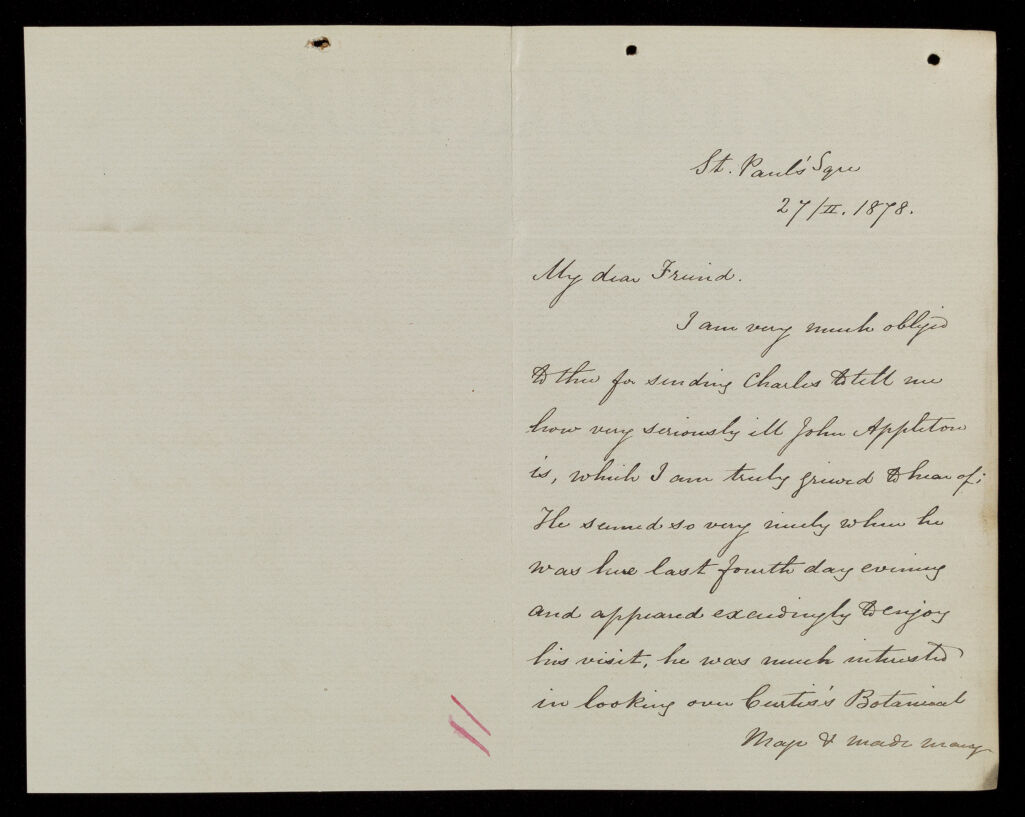 St. Paul's Sqre
27/II. 1878.
My dear Friend.
I am very much oblig'd
to thee for sending Charles to tell me
how very seriously ill John Appleton
is, which I am truly grieved to hear of;
He seemed so very nicely when he
was here last fourth day evening
and appeared exceedingly to enjoy
his visit, he was much interested
in looking over Curtis's Botanical
Mag. & made many